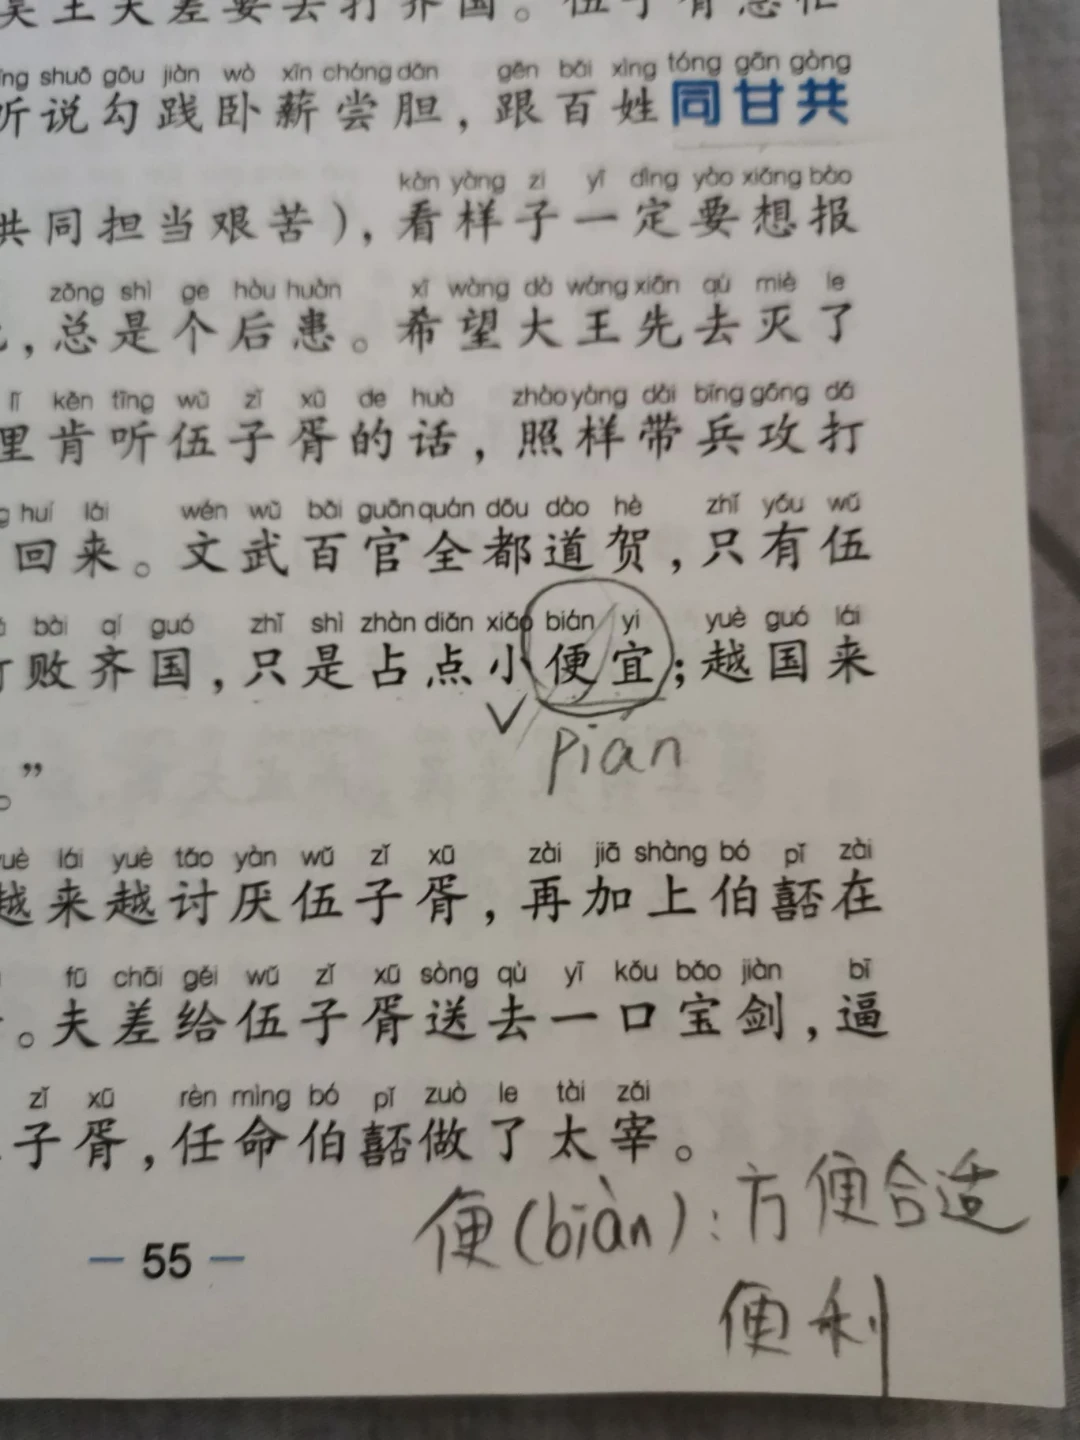 吴王夫差要去打齐国。伍子胥急忙
shuō gōu jiàn wò xīn cháng dǎn gēn bǎi xìng tóng gān gòng
听说勾践卧薪尝胆，跟百姓同甘共
kàn yàng zi yī dìng yào xiǎng bào
共同担当艰苦），看样子一定要想报
zǒng shì ge hòu huàn xī wàng dà wáng xiān qù miè le
，总是个后患。希望大王先去灭了
lǐ kěn tīng wǔ zǐ xū de huà zhào yàng dài bīng gōng dǎ
里肯听伍子胥的话，照样带兵攻打
huí lái wén wǔ bǎi guān quán dōu dào hè zhǐ yǒu wǔ
回来。文武百官全都道贺，只有伍
bài qí guó zhǐ shì zhàn diǎn xiǎo bián yi yuè guó lái
打败齐国，只是占点小便宜；越国来
pián
。”
yuè lái yuè tǎo yàn wǔ zǐ xū zài jiā shàng bó pǐ zài
越来越讨厌伍子胥，再加上伯嚭在
fū chāi gěi wǔ zǐ xū sòng qù yī kǒu bǎo jiàn bī
。夫差给伍子胥送去一口宝剑，逼
zǐ xū rèn mìng bó pǐ zuò le tài zǎi
子胥，任命伯嚭做了太宰。
便(biàn)：方便合适
便利
55